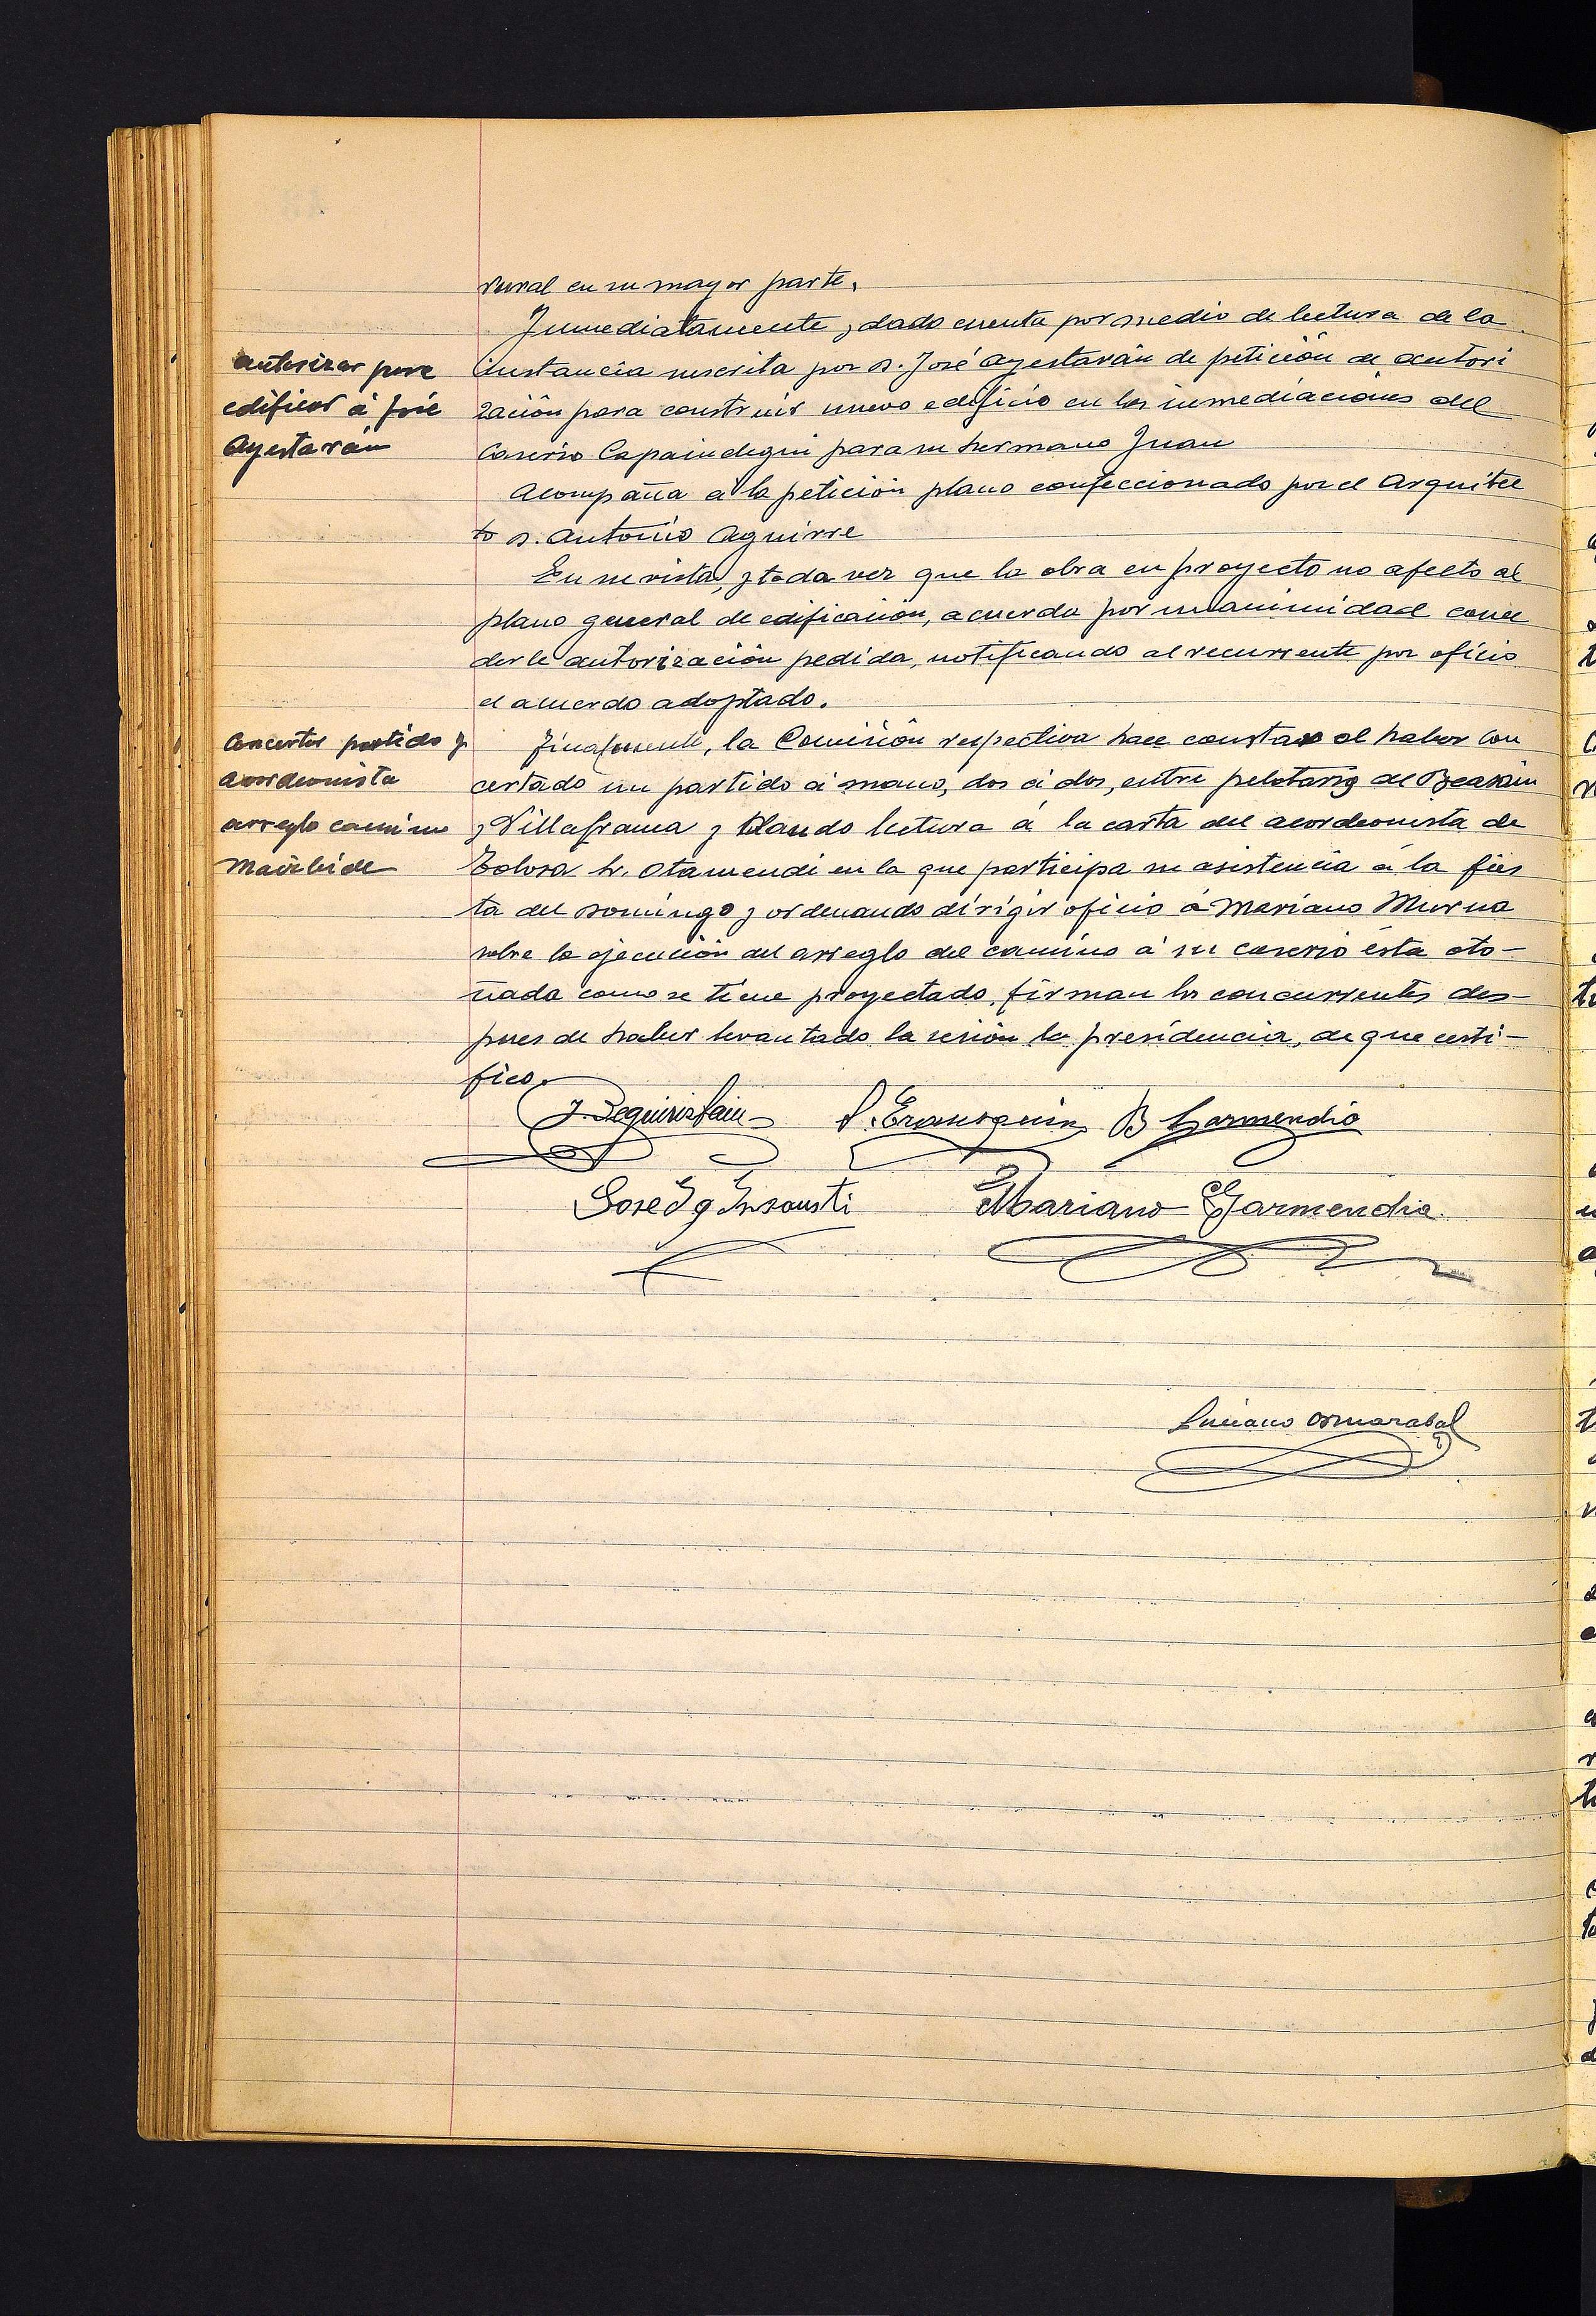 rural en su mayor parte.
Inmediatamente, dado cuenta por medio de lectura de la
autorizar para
instancia suscrita por D. José Ayestarán de petición de autori
edificar á José
zación para construir nuevo edificio en las inmediaciones del
Ayestarán
Caserio Capaindegui para su hermano Juan
Acompaña á la petición plano confeccionado por el Arquitec
to D. Antonio Aguirre
En su vista, y toda vez que la obra en proyecto no afecta al
plano general de edificación, acuerda por unanimidad conce
derle autorización pedida, notificando al recurrente por oficio
el acuerdo adoptado.
Concertar partido y
Finalmente, la Comisión respectiva hace constar el haber con
acordeonista
certado un partido á mano, dos á dos, entre pelotaris de Beasain
arreglo camino
y Villafranca y dando lectura á la carta del acordeonista de
Tolosa Sr. Otamendi en la que participa su asistencia á la fies
ta del Domingo y ordenando dirigir oficio á Mariano Murua
sobre la ejecución del arreglo del camino á su caserio esta oto-
ñada como se tiene proyectado, firman los concurrentes des-
pues de haber levantado la sesión la presidencia, de que certi-
fico.
B Garmendia
José Ig Insausti Mariano Garmendia
Luciano